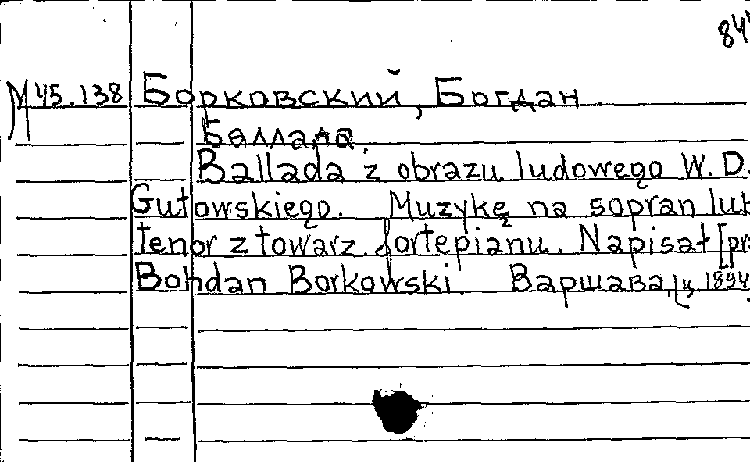 84
М 45.138 Борковский, Богдан
Баллада.
Ballada z obrazu ludowego W. D.
Gutowskiego. Muzykę na sopran lub
tenor z towarz. fortepianu. Napisał [pr
Bohdan Borkowski. Варшава, ц. 1894.